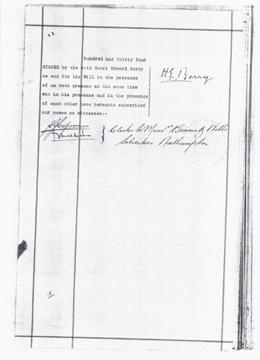 hundred and thirty four
SIGNED by the said Henry Edward Berry
as and for his Will in the presence
of us both present at the same time
who in his presence and in the presence
of each other have hereunto subscribed
our names as witnesses:-
H.E. Berry
Clerks to Messrs
Solicitors Northampton